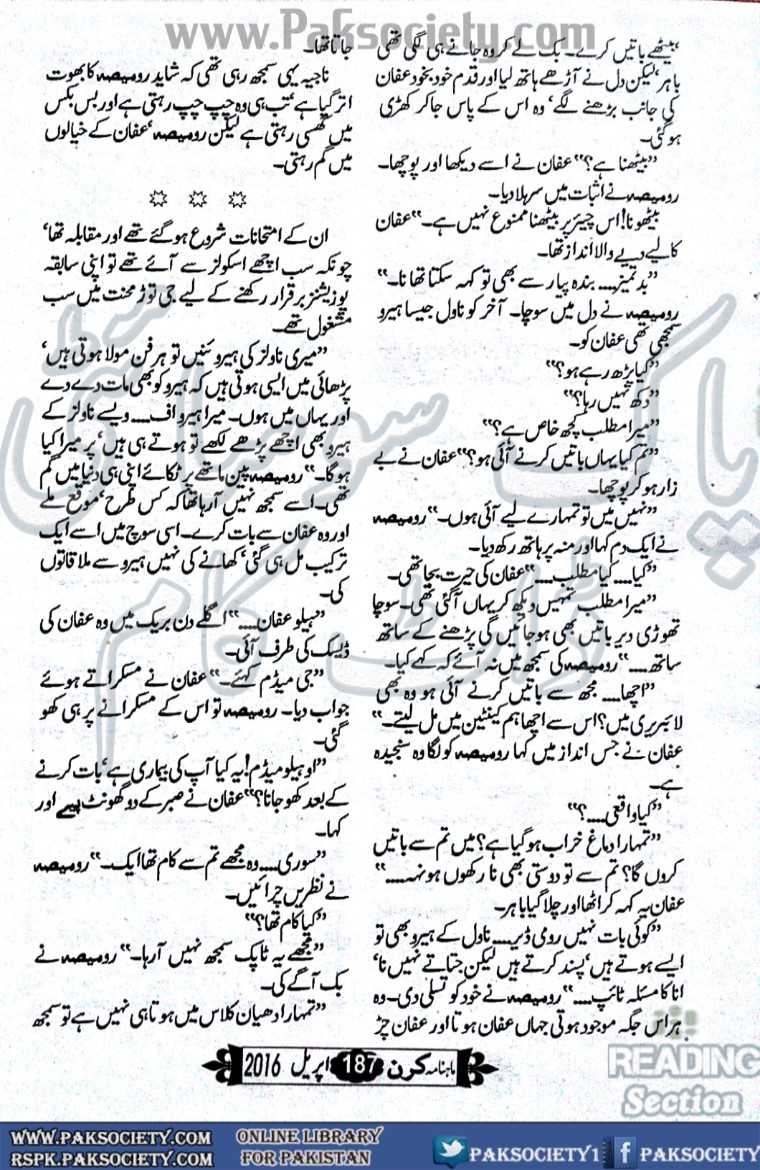 www.Paksociety.com
بیٹھے باتیں کرے۔ بک لے کر وہ جانے ہی لگی تھی
باہر، لیکن دل نے آڑھے ہاتھ لیا اور قدم خود بخود عفان
کی جانب بڑھنے لگے، وہ اس کے پاس جا کر کھڑی
ہو گئی۔
"بیٹھنا ہے؟" عفان نے اسے دیکھا اور پوچھا۔
رومیصہ نے اثبات میں سر ہلا دیا۔
"بیٹھو نا! اس چیئر پر بیٹھنا ممنوع نہیں ہے۔" عفان
کا لیے دیے والا انداز تھا۔
"بدتمیز.... بندہ پیار سے بھی تو کہہ سکتا تھا نا۔"
رومیصہ نے دل میں سوچا۔ آخر کو ناول جیسا ہیرو
سمجھی تھی عفان کو۔
"کیا پڑھ رہے ہو؟"
"دکھ نہیں رہا؟"
"میرا مطلب کچھ خاص ہے؟"
"تم کیا یہاں باتیں کرنے آئی ہو؟" عفان نے بے
زار ہو کر پوچھا۔
"نہیں میں تو تمہارے لیے آئی ہوں۔" رومیصہ
نے ایک دم کہا اور منہ پر ہاتھ رکھ دیا۔
"کیا.... کیا مطلب...." عفان کی حیرت بجا تھی۔
"میرا مطلب تمہیں دیکھ کر یہاں آ گئی تھی۔ سوچا
تھوڑی دیر باتیں بھی ہو جائیں گی پڑھنے کے ساتھ
ساتھ...." رومیصہ کی سمجھ میں نہ آئے کہ کہے کیا۔
"اچھا.... مجھ سے باتیں کرنے آئی ہو وہ بھی
لائبریری میں؟ اس سے اچھا ہم کینٹین میں مل لیتے۔"
عفان نے جس انداز میں کہا رومیصہ کو لگا وہ سنجیدہ
ہے۔
"کیا واقعی....؟"
"تمہارا دماغ خراب ہو گیا ہے؟ میں تم سے باتیں
کروں گا؟ تم سے تو دوستی بھی نا رکھوں ہونہہ...."
عفان یہ کہہ کر اٹھا اور چلا گیا باہر۔
"کوئی بات نہیں رومی ڈیر.... ناول کے ہیرو بھی تو
ایسے ہوتے ہیں، پسند کرتے ہیں لیکن جتاتے نہیں نا،
انا کا مسئلہ ٹائپ...." رومیصہ نے خود کو تسلی دی۔ وہ
ہر اس جگہ موجود ہوتی جہاں عفان ہوتا اور عفان چڑ
جاتا تھا۔
ناجیہ یہی سمجھ رہی تھی کہ شاید رومیصہ کا بھوت
اتر گیا ہے، تب ہی وہ چپ چپ رہتی ہے اور بس بکس
میں گھسی رہتی ہے لیکن رومیصہ، عفان کے خیالوں
میں گم رہتی۔
☼ ☼ ☼
ان کے امتحانات شروع ہو گئے تھے اور مقابلہ تھا،
چونکہ سب اچھے اسکولز سے آئے تھے تو اپنی سابقہ
پوزیشنز برقرار رکھنے کے لیے جی توڑ محنت میں سب
مشغول تھے۔
"میری ناولز کی ہیروئنیں تو ہر فن مولا ہوتی ہیں،
پڑھائی میں ایسی ہوتی ہیں کہ ہیرو کو بھی مات دے دے
اور یہاں میں ہوں۔ میرا ہیرو اف.... ویسے ناولز کے
ہیرو بھی اچھے پڑھے لکھے تو ہوتے ہی ہیں، پر میرا کیا
ہو گا۔" رومیصہ پین ماتھے پر ٹکائے اپنی ہی دنیا میں گم
تھی۔ اسے سمجھ نہیں آ رہا تھا کہ کس طرح، موقع ملے
اور وہ عفان سے بات کرے۔ اسی سوچ میں اسے ایک
ترکیب مل ہی گئی، کھانے کی نہیں ہیرو سے ملاقاتوں
کی۔
"ہیلو عفان...." اگلے دن بریک میں وہ عفان کی
ڈیسک کی طرف آئی۔
"جی میڈم کہئے۔" عفان نے مسکراتے ہوئے
جواب دیا۔ رومیصہ تو اس کے مسکرانے پر ہی کھو
گئی۔
"او ہیلو میڈم! یہ کیا آپ کی بیماری ہے، بات کرنے
کے بعد کھو جانا؟" عفان نے صبر کے دو گھونٹ پیے اور
کہا۔
"سوری.... وہ مجھے تم سے کام تھا ایک۔" رومیصہ
نے نظریں چرائیں۔
"کیا کام تھا؟"
"مجھے یہ ٹاپک سمجھ نہیں آ رہا۔" رومیصہ نے
بک آگے کی۔
"تمہارا دھیان کلاس میں ہوتا ہی نہیں ہے تو سمجھ
ماہنامہ کرن 187 اپریل 2016
READING
Section
پاک سوسائٹی
ڈاٹ کام
WWW.PAKSOCIETY.COM
RSPK.PAKSOCIETY.COM
ONLINE LIBRARY
FOR PAKISTAN
PAKSOCIETY1
PAKSOCIETY